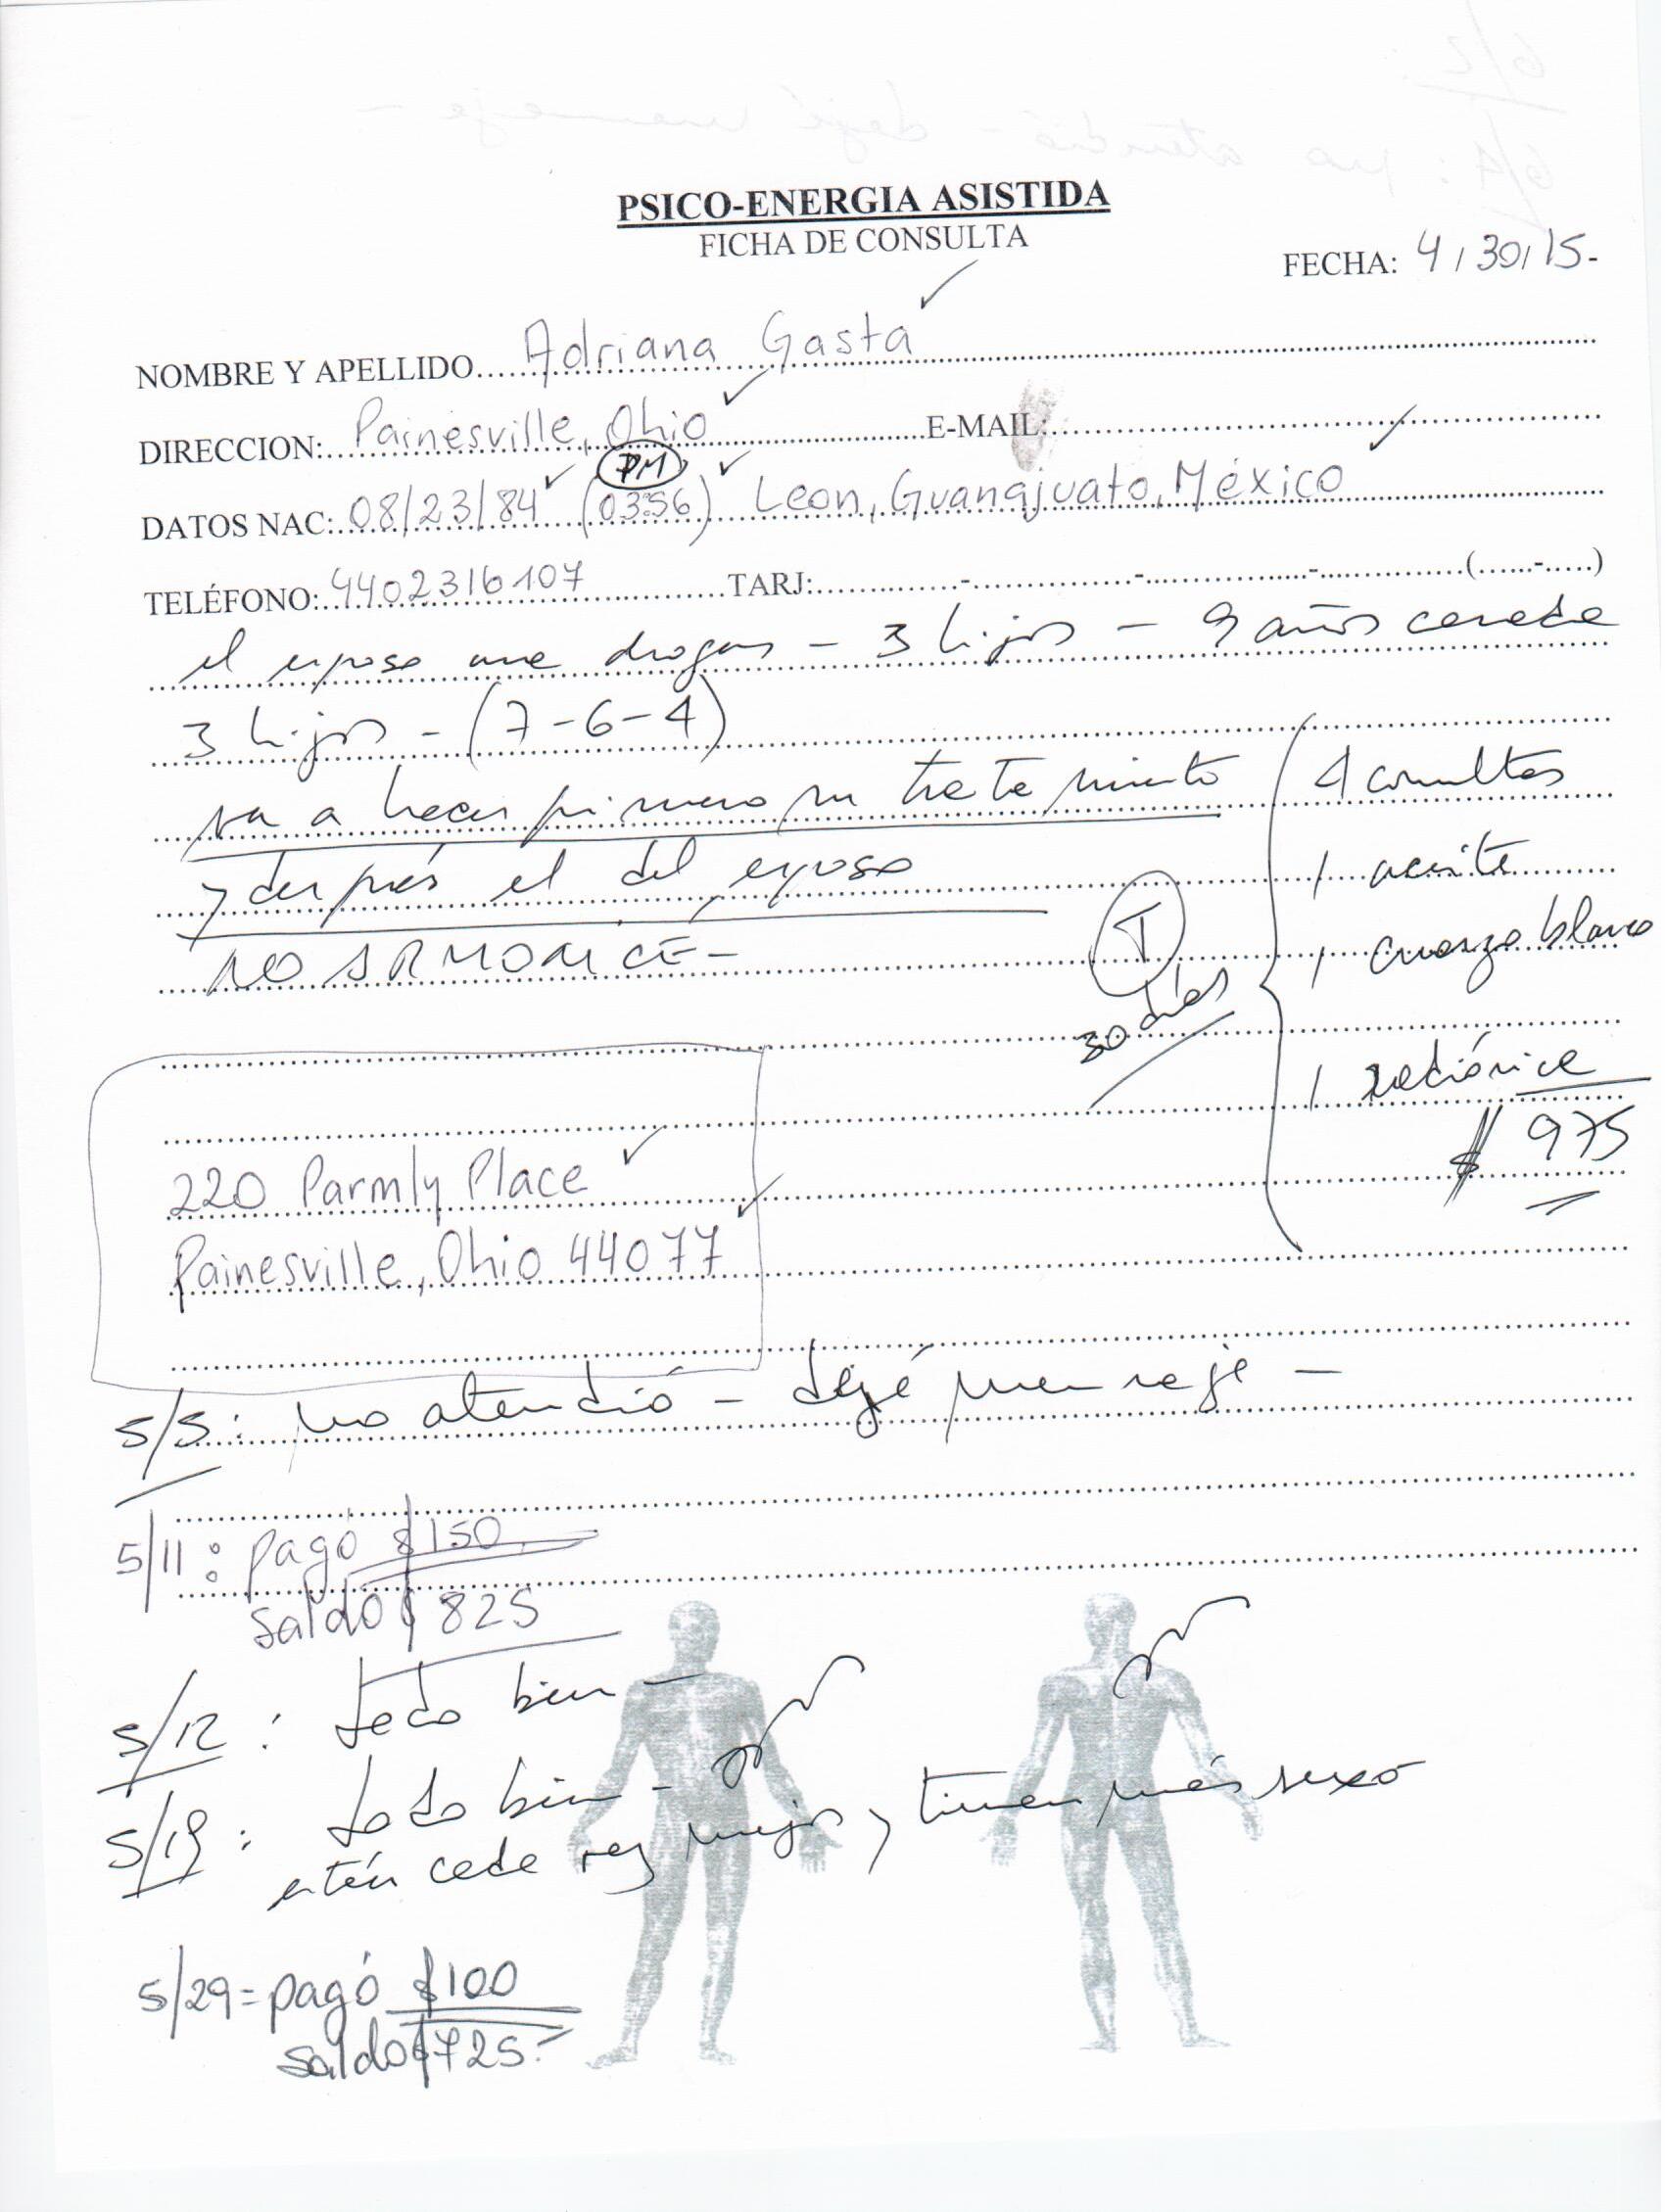 PSICO-ENERGIA ASISTIDA
FICHA DE CONSULTA
FECHA: 4/30/15-
NOMBRE Y APELLIDO Adriana Gasta
DIRECCION: Painesville, Ohio E-MAIL:
PM
DATOS NAC: 08/23/84 (03:56) Leon, Guanajuato, México
TELÉFONO: 4402316107 TARJ: - - - ( - )
el esposo usa drogas - 3 hijos - 9 años casada
3 hijos - (7-6-4)
va a hacer primero su tratamiento
y después el del esposo
NO ARMONICE-
T
30 días
4 consultas
1 aceite
1 cuarzo blanco
1 radiónica
$ 975
220 Parmly Place
Painesville, Ohio 44077
5/5: no atendió - dejé mensaje -
5/11: pagó $150
saldo $ 825
5/12: todo bien -
5/19: todo bien -
están cada vez mejor y tienen más sexo
5/29= pagó $100
saldo $725.-